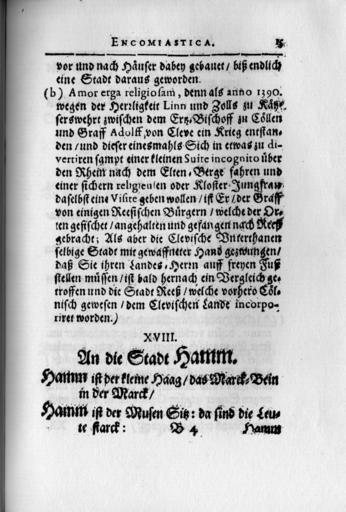 ENCOMIASTICA. 15
vor und nach Häuser dabey gebauet / biß endlich
eine Stadt daraus geworden.
(b) Amor erga religiosam, denn als anno 1390.
wegen der Herrligkeit Linn und Zolls zu Käy-
serswehrt zwischen dem Ertz-Bischoff zu Cöllen
und Graff Adolff von Cleve ein Krieg entstan-
den / und dieser einesmahls Sich in etwas zu di-
vertiren sampt einer kleinen Suite incognito über
den Rhein nach dem Elten-Berge fahren und
einer sichern religieusen oder Kloster-Jungfrau
daselbst eine Visite geben wollen / ist Er / der Graff
von einigen Reesischen Bürgern / welche der Or-
ten gefischet / angehalten und gefangen nach Reeß
gebracht; Als aber die Clevische Unterthanen
selbige Stadt mit gewaffneter Hand gezwungen /
daß Sie ihren Landes-Herrn auff freyen Fuß
stellen müssen / ist bald hernach ein Vergleich ge-
troffen und die Stadt Reeß / welche vorhero Cöl-
nisch gewesen / dem Clevischen Lande incorpo-
riret worden.)
XVIII.
An die Stadt Hamm.
Hamm ist der kleine Haag / das Marck-Bein
in der Marck /
Hamm ist der Musen Sitz: da sind die Leu-
te starck: B 4 Hamm